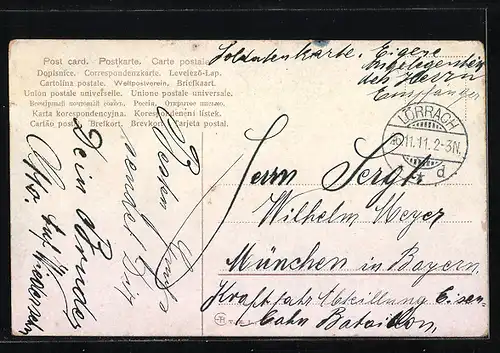 Post card. Postkarte. Carte postale
Dopisnice. Correspondenzkarte. Levelező-Lap.
Cartolina postale. Weltpostverein. Briefkaart.
Union postale universelle. Unione postale universale.
Всемірный почтовый союзъ. Россія. Открытое письмо.
Karta korespondencyjna. Korespondenční lístek.
Cartão postal. Brefkort. Brevkort. Tarjeta postal.
Soldatenkarte. Eigene
Angelegenheit
des Herrn
Empfänger
LÖRRACH
11.11. 2-3N.
* d
Herrn Sergt.
Wilhelm Meyer
München in Bayern.
Kraftfahr Abteillung Eisen-
bahn Bataillon,
Besten Gruß
sendet Dir
Dein Bruder
Otto. Auf Wiedersehn